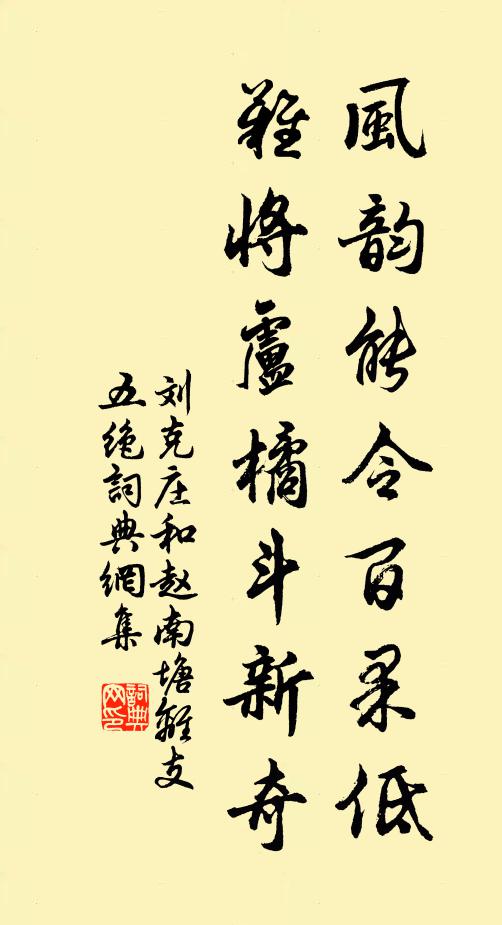 風韵能令百果低
難將盧橘斗新奇
刘克庄和赵南塘離支
五绝詞典網集
詞典网印